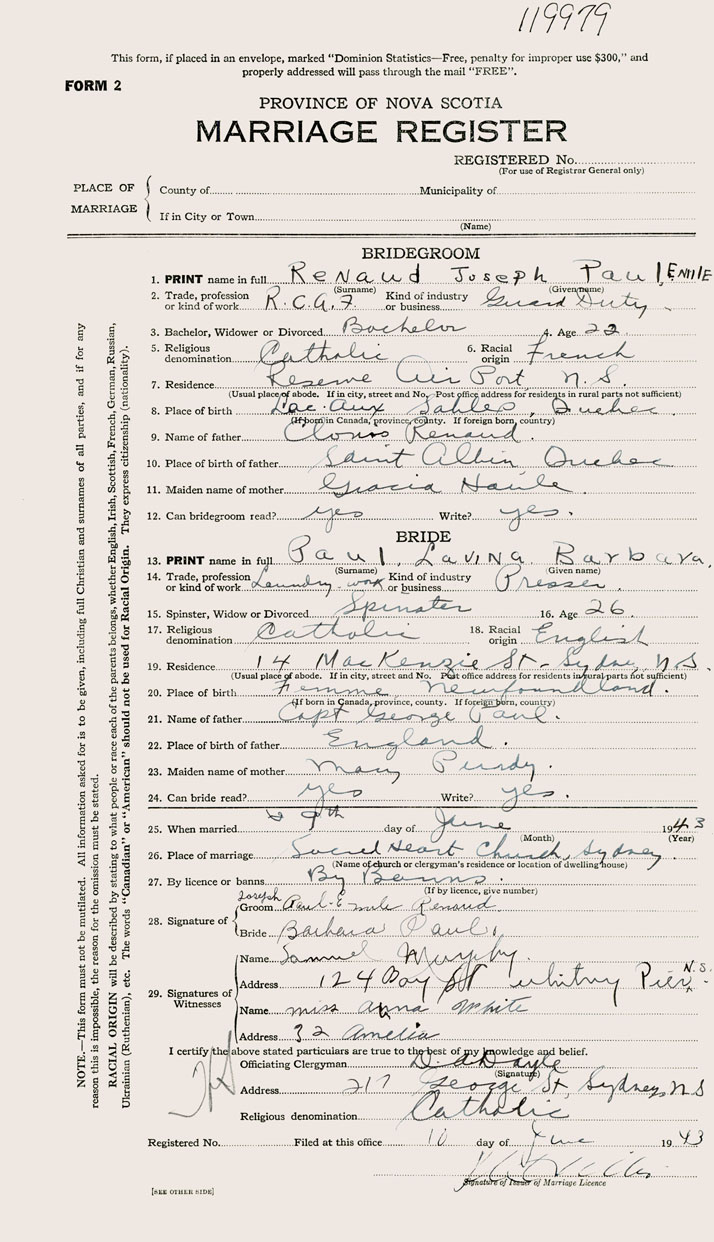 119979
This form, if placed in an envelope, marked "Dominion Statistics—Free, penalty for improper use $300," and
properly addressed will pass through the mail "FREE".
FORM 2
PROVINCE OF NOVA SCOTIA
MARRIAGE REGISTER
REGISTERED No.
(For use of Registrar General only)
PLACE OF MARRIAGE
County of Municipality of
If in City or Town
(Name)
BRIDEGROOM
1. PRINT name in full Renaud Joseph Paul Emile
(Surname) (Given name)
2. Trade, profession or kind of work R.C.A.F. Kind of industry or business Guard Duty
3. Bachelor, Widower or Divorced Bachelor 4. Age 22
5. Religious denomination Catholic 6. Racial origin French
7. Residence Reserve Air Port N.S.
(Usual place of abode. If in city, street and No. Post office address for residents in rural parts not sufficient)
8. Place of birth Lac-Aux Sables, Quebec
(If born in Canada, province, county. If foreign born, country)
9. Name of father Renaud
10. Place of birth of father Saint Quebec
11. Maiden name of mother Gracia
12. Can bridegroom read? yes Write? yes.
BRIDE
13. PRINT name in full Paul, Lavina Barbara,
(Surname) (Given name)
14. Trade, profession or kind of work Laundry-work Kind of industry or business Presser
15. Spinster, Widow or Divorced Spinster 16. Age 26
17. Religious denomination Catholic 18. Racial origin English
19. Residence 14 MacKenzie St- Sydney, N.S.
(Usual place of abode. If in city, street and No. Post office address for residents in rural parts not sufficient)
20. Place of birth Femme Newfoundland.
(If born in Canada, province, county. If foreign born, country)
21. Name of father Capt George Paul.
22. Place of birth of father England.
23. Maiden name of mother Mary Purdy.
24. Can bride read? yes Write? yes.
25. When married 9th day of June 1943
(Month) (Year)
26. Place of marriage Sacred Heart Church, Sydney
(Name of church or clergyman's residence or location of dwelling house)
27. By licence or banns By Banns.
(If by licence, give number)
28. Signature of
Groom Joseph Paul-Emile Renaud
Bride Barbara Paul
29. Signatures of Witnesses
Name Samuel Murphy.
Address 124 Day St Whitney Pier, N.S.
Name miss anna White
Address 32 Amelia
I certify the above stated particulars are true to the best of my knowledge and belief.
Officiating Clergyman
(Signature)
Address 217 George St, Sydney, N.S
Religious denomination Catholic
Registered No. Filed at this office 10 day of June 1943
Signature of Issuer of Marriage Licence
[SEE OTHER SIDE]
NOTE.—This form must not be mutilated. All information asked for is to be given, including full Christian and surnames of all parties, and if for any
reason this is impossible, the reason for the omission must be stated.
RACIAL ORIGIN will be described by stating to what people or race each of the parents belongs, whether English, Irish, Scottish, French, German, Russian,
Ukrainian (Ruthenian), etc. The words "Canadian" or "American" should not be used for Racial Origin. They express citizenship (nationality).